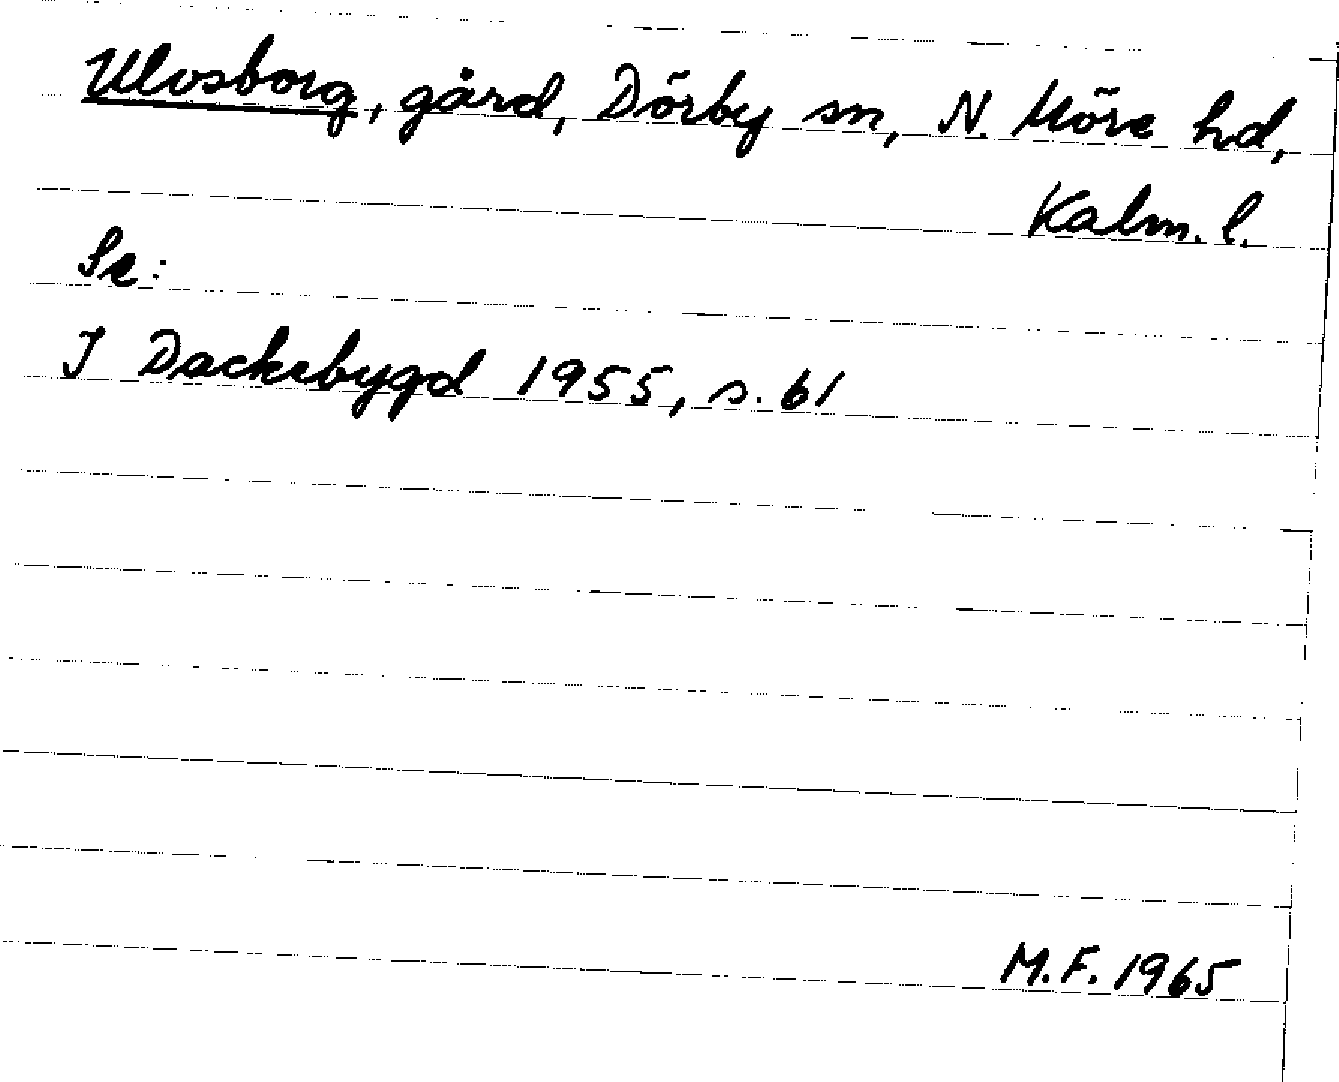 Ulvsborg, gård, Dörby sn, N. Möre hd,
Kalm. l.
Se:
I Dackebygd 1955, s. 61
M.F. 1965